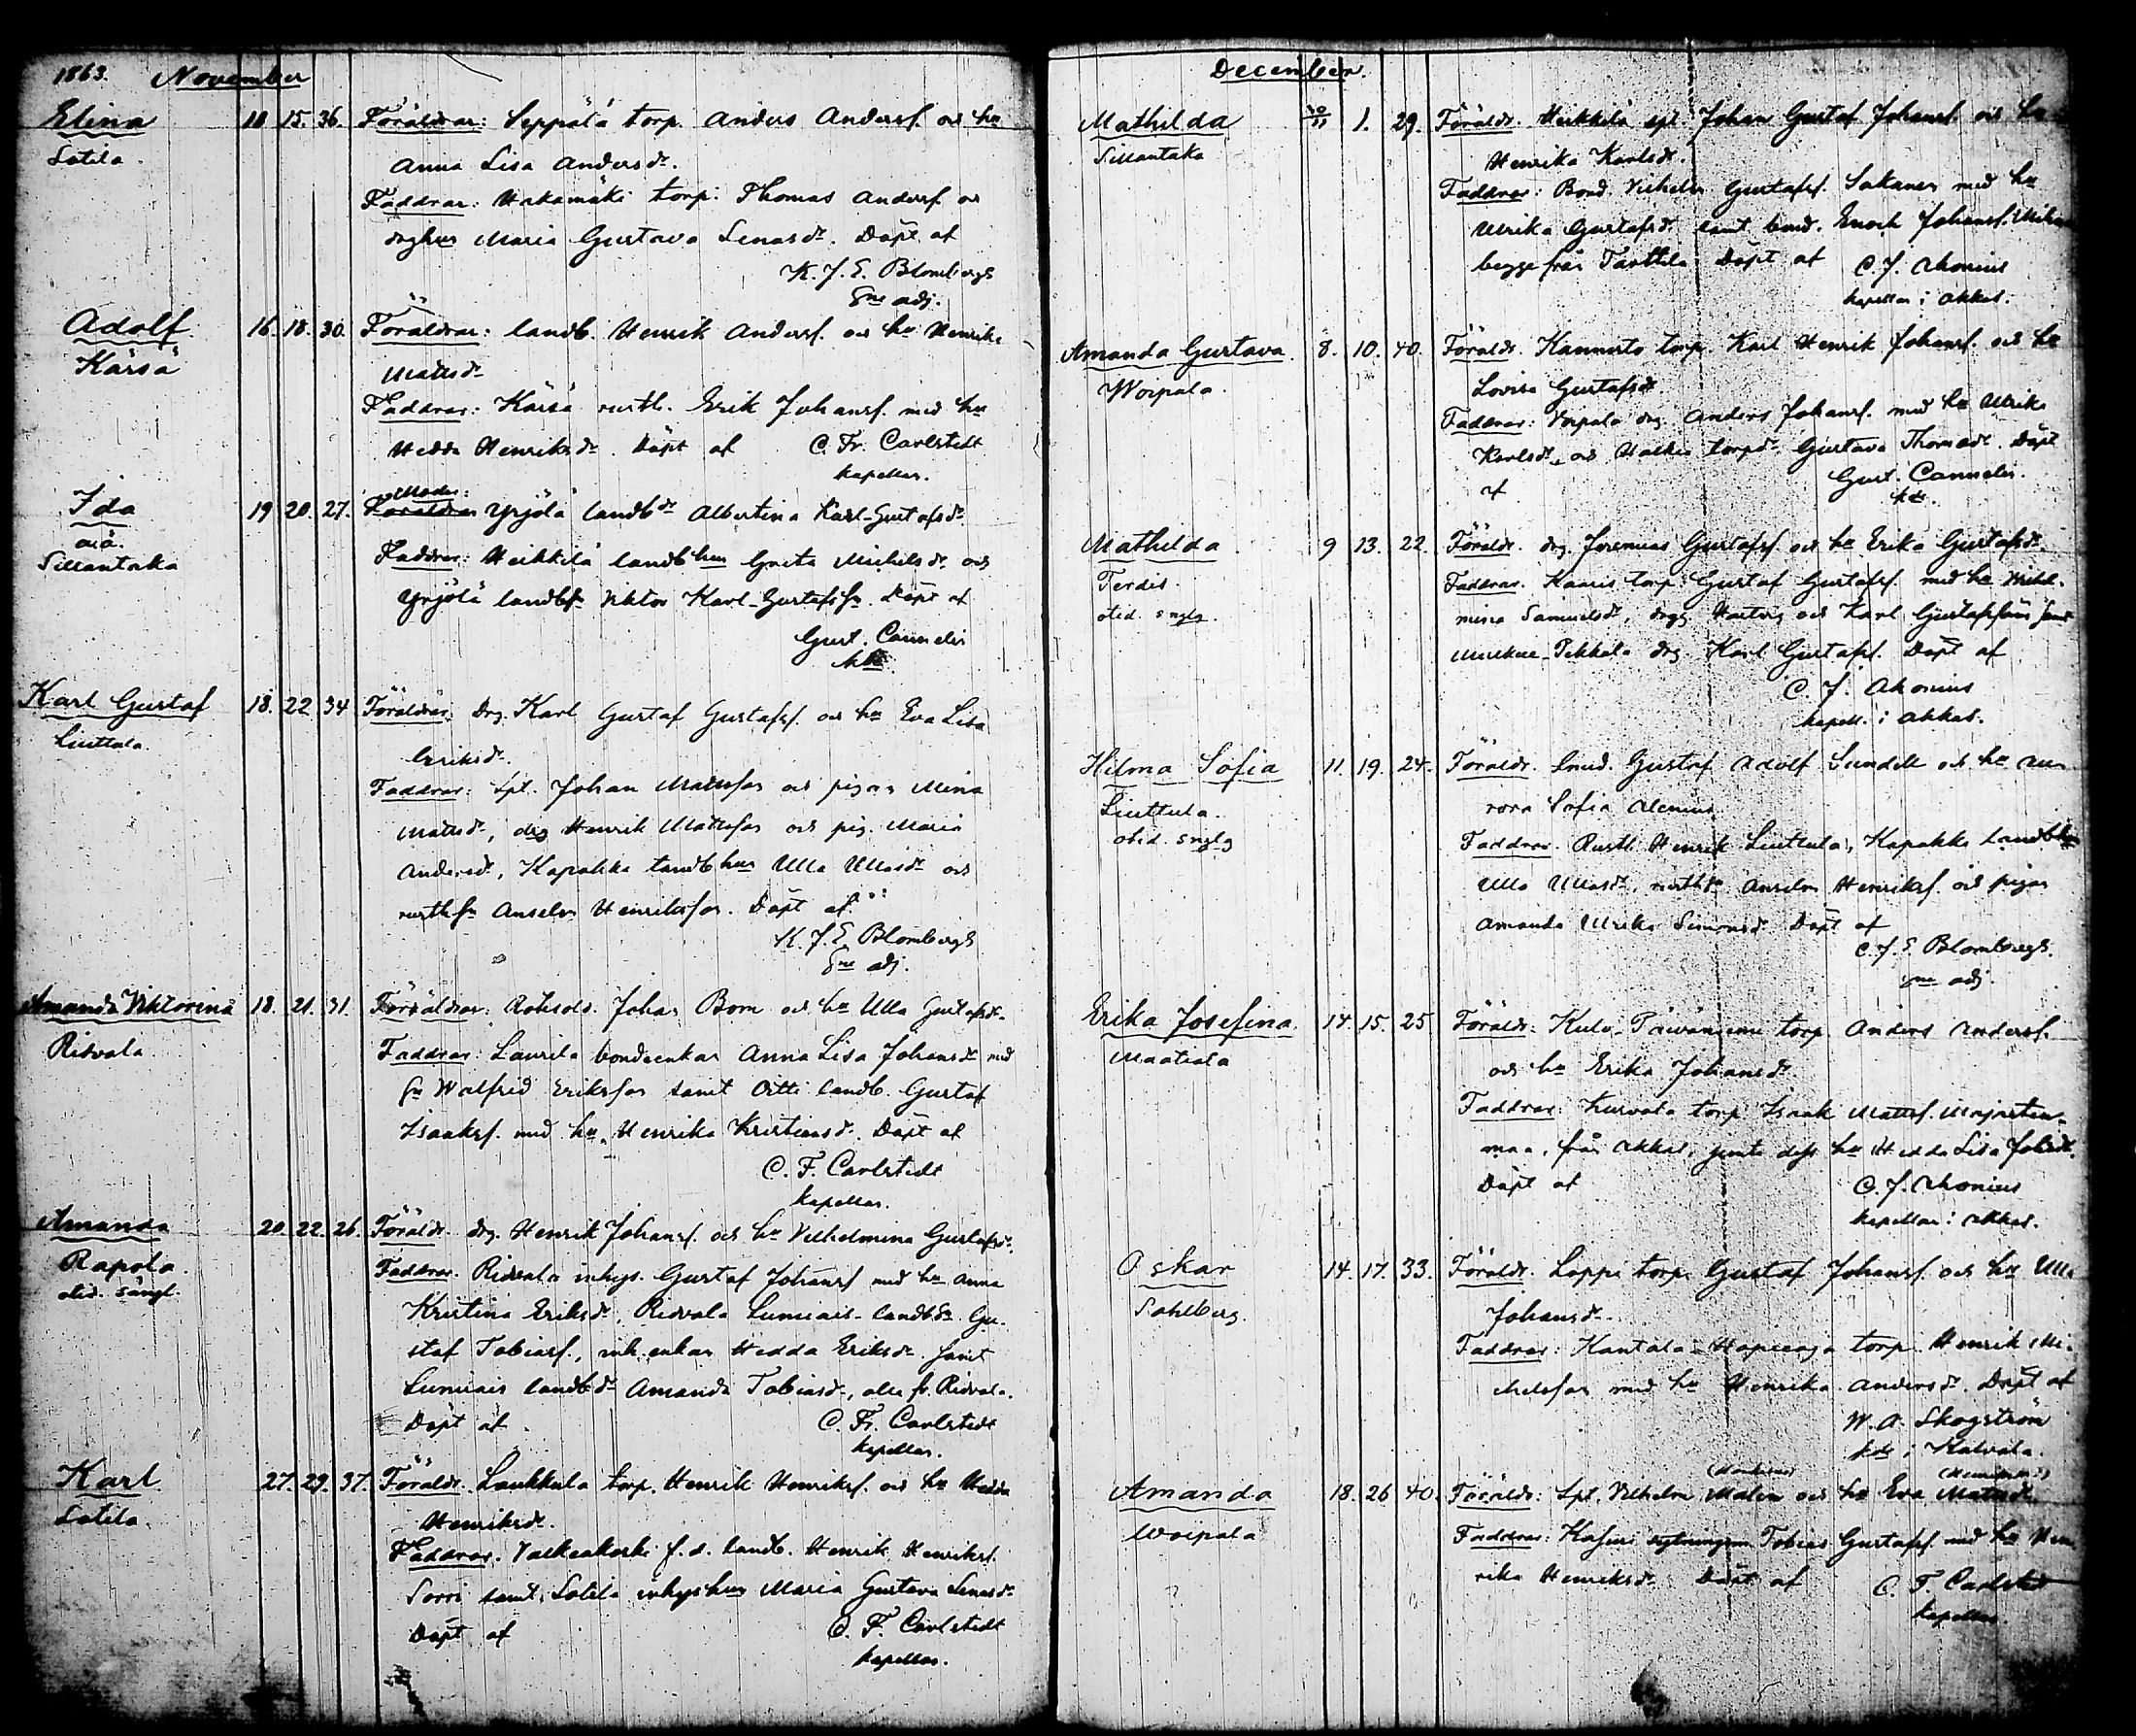 1863. November
Elina 10 15. 36. Föräldrar: Seppälä torp. Anders Andersf. och hu
Sotila. Anna Lisa Andersdr.
Faddrar: Hakamäki torp: Thomas Andersf. och
drghus Maria Gustava Lenasdr. Döpt af
K. J. E. Blombergh
Sne adj.
Adolf 16. 18. 30. Föräldrar: landb. Henrik Andersf. och hu Henrika
Kärsä Mattsdr
Faddrar: Kärsä rusth. Erik Johansf. med hu
Hedda Henriksdr. Döpt af C. Fr. Carlstedt
kapellan.
Moder:
Ida 19 20. 27. Föräldrar Yrjölä landbdr Albertina Karl-Gustafsdr
oä.
Sillantaka Faddrar: Heikkilä landbhun Greta Michelsdr och
Yrjölä landbsn Viktor Karl-Gustafsn. Döpt af
Gust. Cannelin
kkh.
Karl Gustaf 18. 22 34 Föräldrar: Drg. Karl Gustaf Gustafsf. och hu Eva Lisa
Liuttula. Eriksdr.
Faddrar: Spl. Johan Mattsson och pigan Mina
Mattsdr, drg Henrik Mattsson och pig. Maria
Andersdr, Kapakka landbhun Ulla Ullasdr och
rusthsn Anselm Henriksson. Döpt af
K. J. E. Blombergh
Sne adj.
Amanda Viktorina 18. 21. 31. Föräldrar: Rotesold. Johan Bom och hu Ulla Gustafsdr
Ridvala Faddrar: Laurila bondeenkan Anna Lisa Johansdr med
sn Walfrid Eriksson samt Ritti landb. Gustaf
Isaaksf. med hu Henrika Kristiansdr. Döpt af
C. F. Carlstedt
kapellan.
Amanda 20. 22. 26. Föräldr. drg. Henrik Johansf. och hu Vilhelmina Gustafsdr.
Rapola. Faddrar. Ridvala inhys. Gustaf Johansf med hu Anna
olid. sängl. Kristina Eriksdr, Ridvala Lumiais landbsn Gu-
staf Tobiasf., inh.enkan Hedda Eriksdr samt
Lumiais landbdr Amanda Tobiasdr, alla fr. Ridvala.
Döpt af C. Fr. Carlstedt
kapellan.
Karl 27. 29. 37. Föräldr. Laukkula torp. Henrik Henriksf. och hu Hedda
Sotila. Henriksdr.
Faddrar. Valkeakoski f.d. landb. Henrik Henriksf.
Sorri samt Sotila inhyshun Maria Gustava Lenasdr
Döpt af C. F. Carlstedt
kapellan.
December.
Mathilda 30/11 1. 29. Föräldr. Heikkilä spl. Johan Gustaf Johansf och hu
Sillantaka Henrika Karlsdr.
Faddrar: Bond. Vilhelm Gustafsf. Sakanen med hu
Ulrika Gustafsdr samt bond. Enoch Johansf.
begge från Tarttila Döpt af C. J. Ahonius
kapellan i Akkas.
Amanda Gustava 8. 10. 40. Föräldr. Kannisto torp. Karl Henrik Johansf. och hu
Woipala. Lovisa Gustafsdr.
Faddrar: Voipala drg. Anders Johansf. med hu Ulrika
Karlsdr, och torpdr. Gustava Thomasdr. Döpt
af Gust. Cannelin.
kkh.
Mathilda 9 13. 22. Föräldr. drg. Jeremias Gustafsf och hu Erika Gustafsdr.
Terdis. Faddrar. Kaaris torp. Gustaf Gustafsf. med hu Vilhel-
olid. snglg. mina Samuelsdr, drgg Hartvig och Karl Gustafssöner samt
Uusikul-Pekkala drg. Karl Gustafsf. Döpt af
C. J. Ahonius
kapell. i Akkas.
Hilma Sofia 11. 19. 24. Föräldr. Smed. Gustaf Adolf Sundell och hu Au-
Liuttula. rora Sofia Alenius
olid. snglg Faddrar. Rusth. Henrik Liuttula, Kapakka landbhun
Ulla Ullasdr, rusthsn Anselm Henriksf. och pigan
Amanda Ulrika Simonsdr Döpt af
C. J. E. Blombergh.
Sne adj.
Erika Josefina. 14. 15. 25 Föräldr: Kulo-Päiväniemi torp. Anders Andersf.
Maatiala och hu Erika Johansdr.
Faddrar: Kurvola torp Isaak Mattsf.
maa, från Akkas, jemte dess hu Hedda Lisa Johsdr.
Döpt af C. J. Ahonius
kapellan i Akkas.
Oskar 14. 17. 33. Föräldr. Loppi torp. Gustaf Johansf. och hu Ulla
Sahlberg. Johansdr.
Faddrar: Kantala-Hapeeoja torp. Henrik Mi-
chelsson med hu Henrika Andersdr. Döpt af
W. A. Skogström
kdr i Kalvola.
(Henriksdr)
Amanda 18. 26 40. Föräldr: Spl. Vilhelm Malin och hu Eva Mattsdr.
Woipala Faddrar: Kasuri sytningsm. Tobias Gustafsf. med hu Hen-
rika Henriksdr Döpt af C. F. Carlstedt
kapellan.